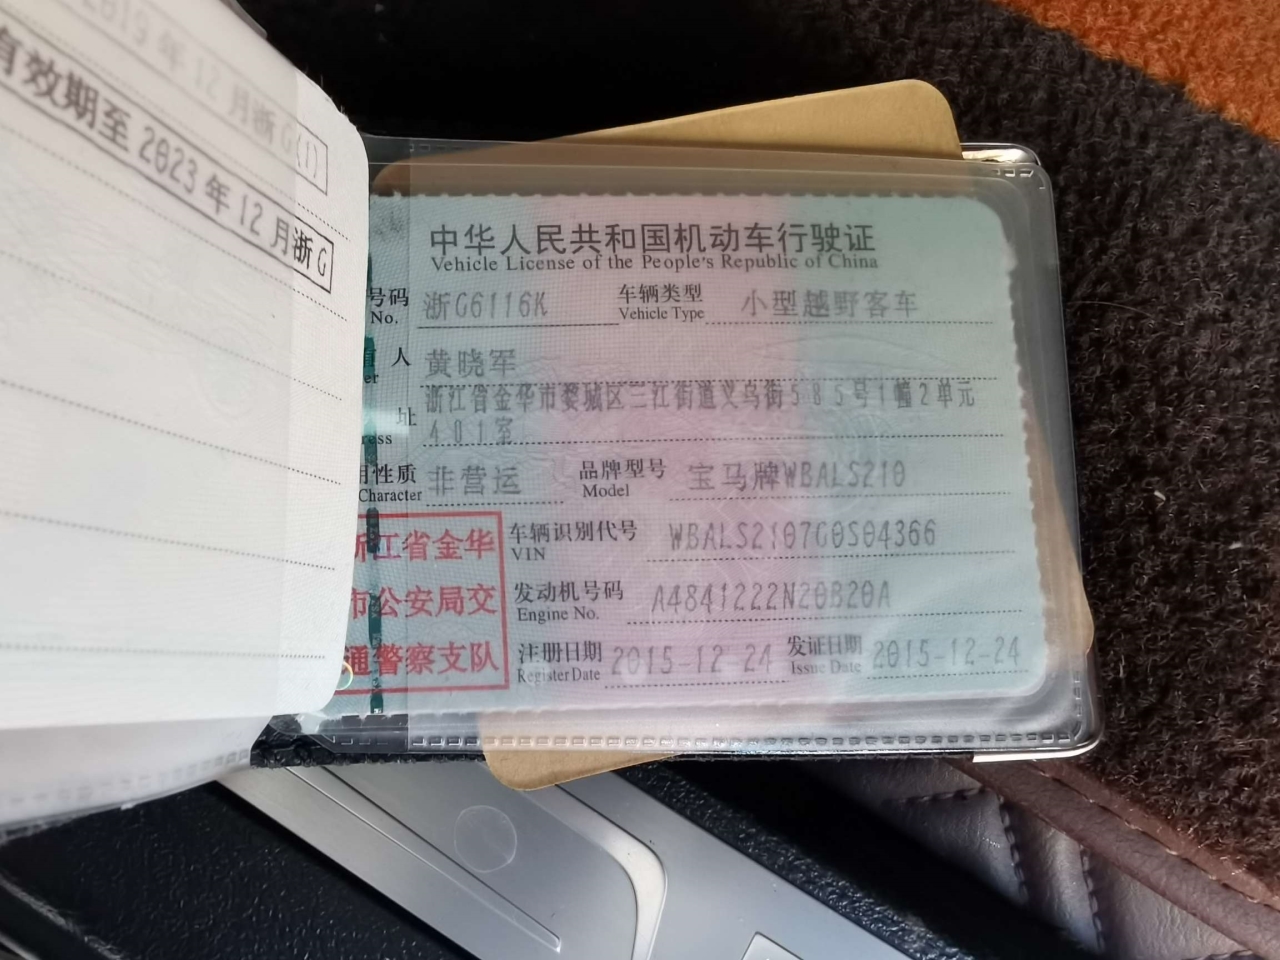 2019年12月浙G(1)
有效期至2023年12月浙G
中华人民共和国机动车行驶证
Vehicle License of the People's Republic of China
号码 浙G6116K 车辆类型 小型越野客车
No. Vehicle Type
人 黄晓军
er
浙江省金华市婺城区三江街道义乌街585号1幢2单元
址 401室
ress
用性质 非营运 品牌型号 宝马牌WBALS210
Character Model
浙江省金华 车辆识别代号 WBALS2107G0S04366
VIN
市公安局交 发动机号码 A4841222N20B20A
Engine No.
通警察支队 注册日期 2015-12-24 发证日期 2015-12-24
Register Date Issue Date